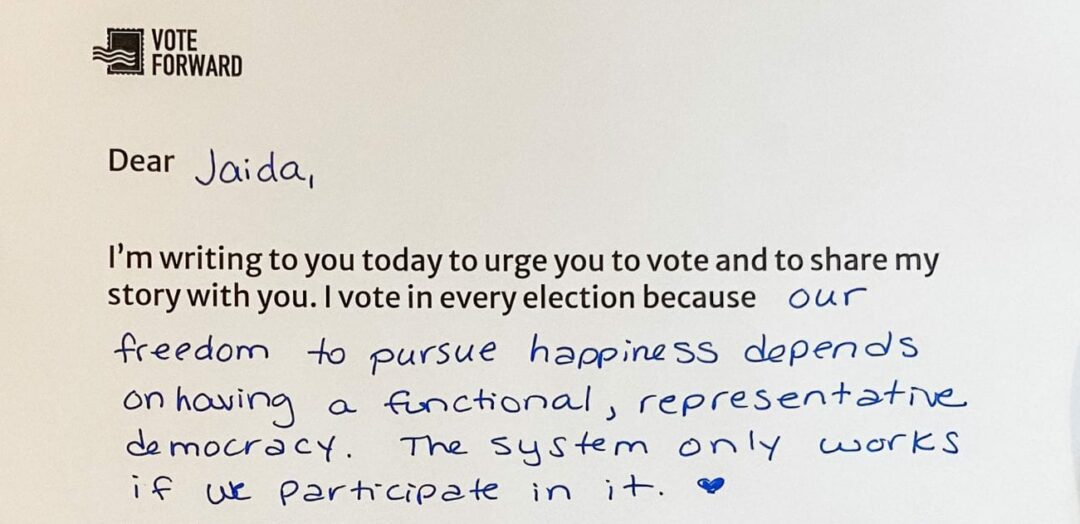 VOTE
FORWARD
Dear Jaida,
I'm writing to you today to urge you to vote and to share my
story with you. I vote in every election because our
freedom to pursue happiness depends
on having a functional, representative
democracy. The system only works
if we participate in it.